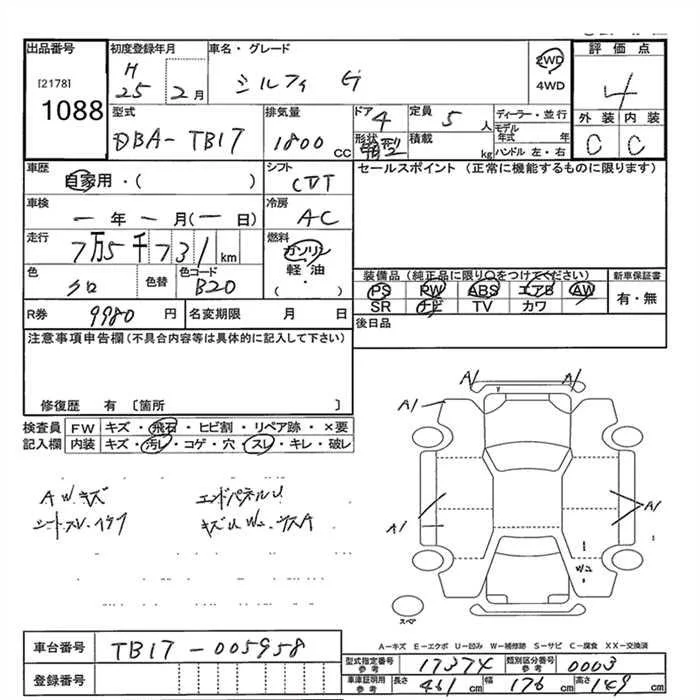 出品番号 初度登録年月 車名・グレード 評価点
[2178] H 25年 2月 シルフィ G 2WD 4
1088 4WD
型式 排気量 ドア 定員 ディーラー・並行 外装 内装
DBA-TB17 1800cc 4 5人 モデル年式 年 C C
形状 箱型 積載 kg ハンドル 左・右
車歴 シフト セールスポイント (正常に機能するものに限ります)
自家用・( ) CVT
車検 冷房
ー年ー月(ー日) AC
走行 燃料
7万5千731km ガソリン
軽油
・
( )
色 色替 色コード 装備品(純正品に限り○をつけてください) 新車保証書
クロ B20 PS PW ABS エアB AW 有・無
SR ナビ TV カワ
R券 9980円 名変期限 月 日 後日品
注意事項申告欄(不具合内容等は具体的に記入して下さい)
修復歴 有 〔箇所 〕
検査員 FW キズ・飛石・ヒビ割・リペア跡・×要
記入欄 内装 キズ・汚レ・コゲ・穴・スレ・キレ・破レ
A1 A1
A1
AWキズ エンドパネルU
キズU W2
A1 A1
W2
スペア
A-キズ E-エクボ U-凹み W-補修跡 S-サビ C-腐食 XX-交換済
車台番号 TB17-005958
型式指定番号 参考 17374 類別区分番号 参考 0003
登録番号
車庫証明用 参考 長さ 461cm 幅 176cm 高さ 149cm